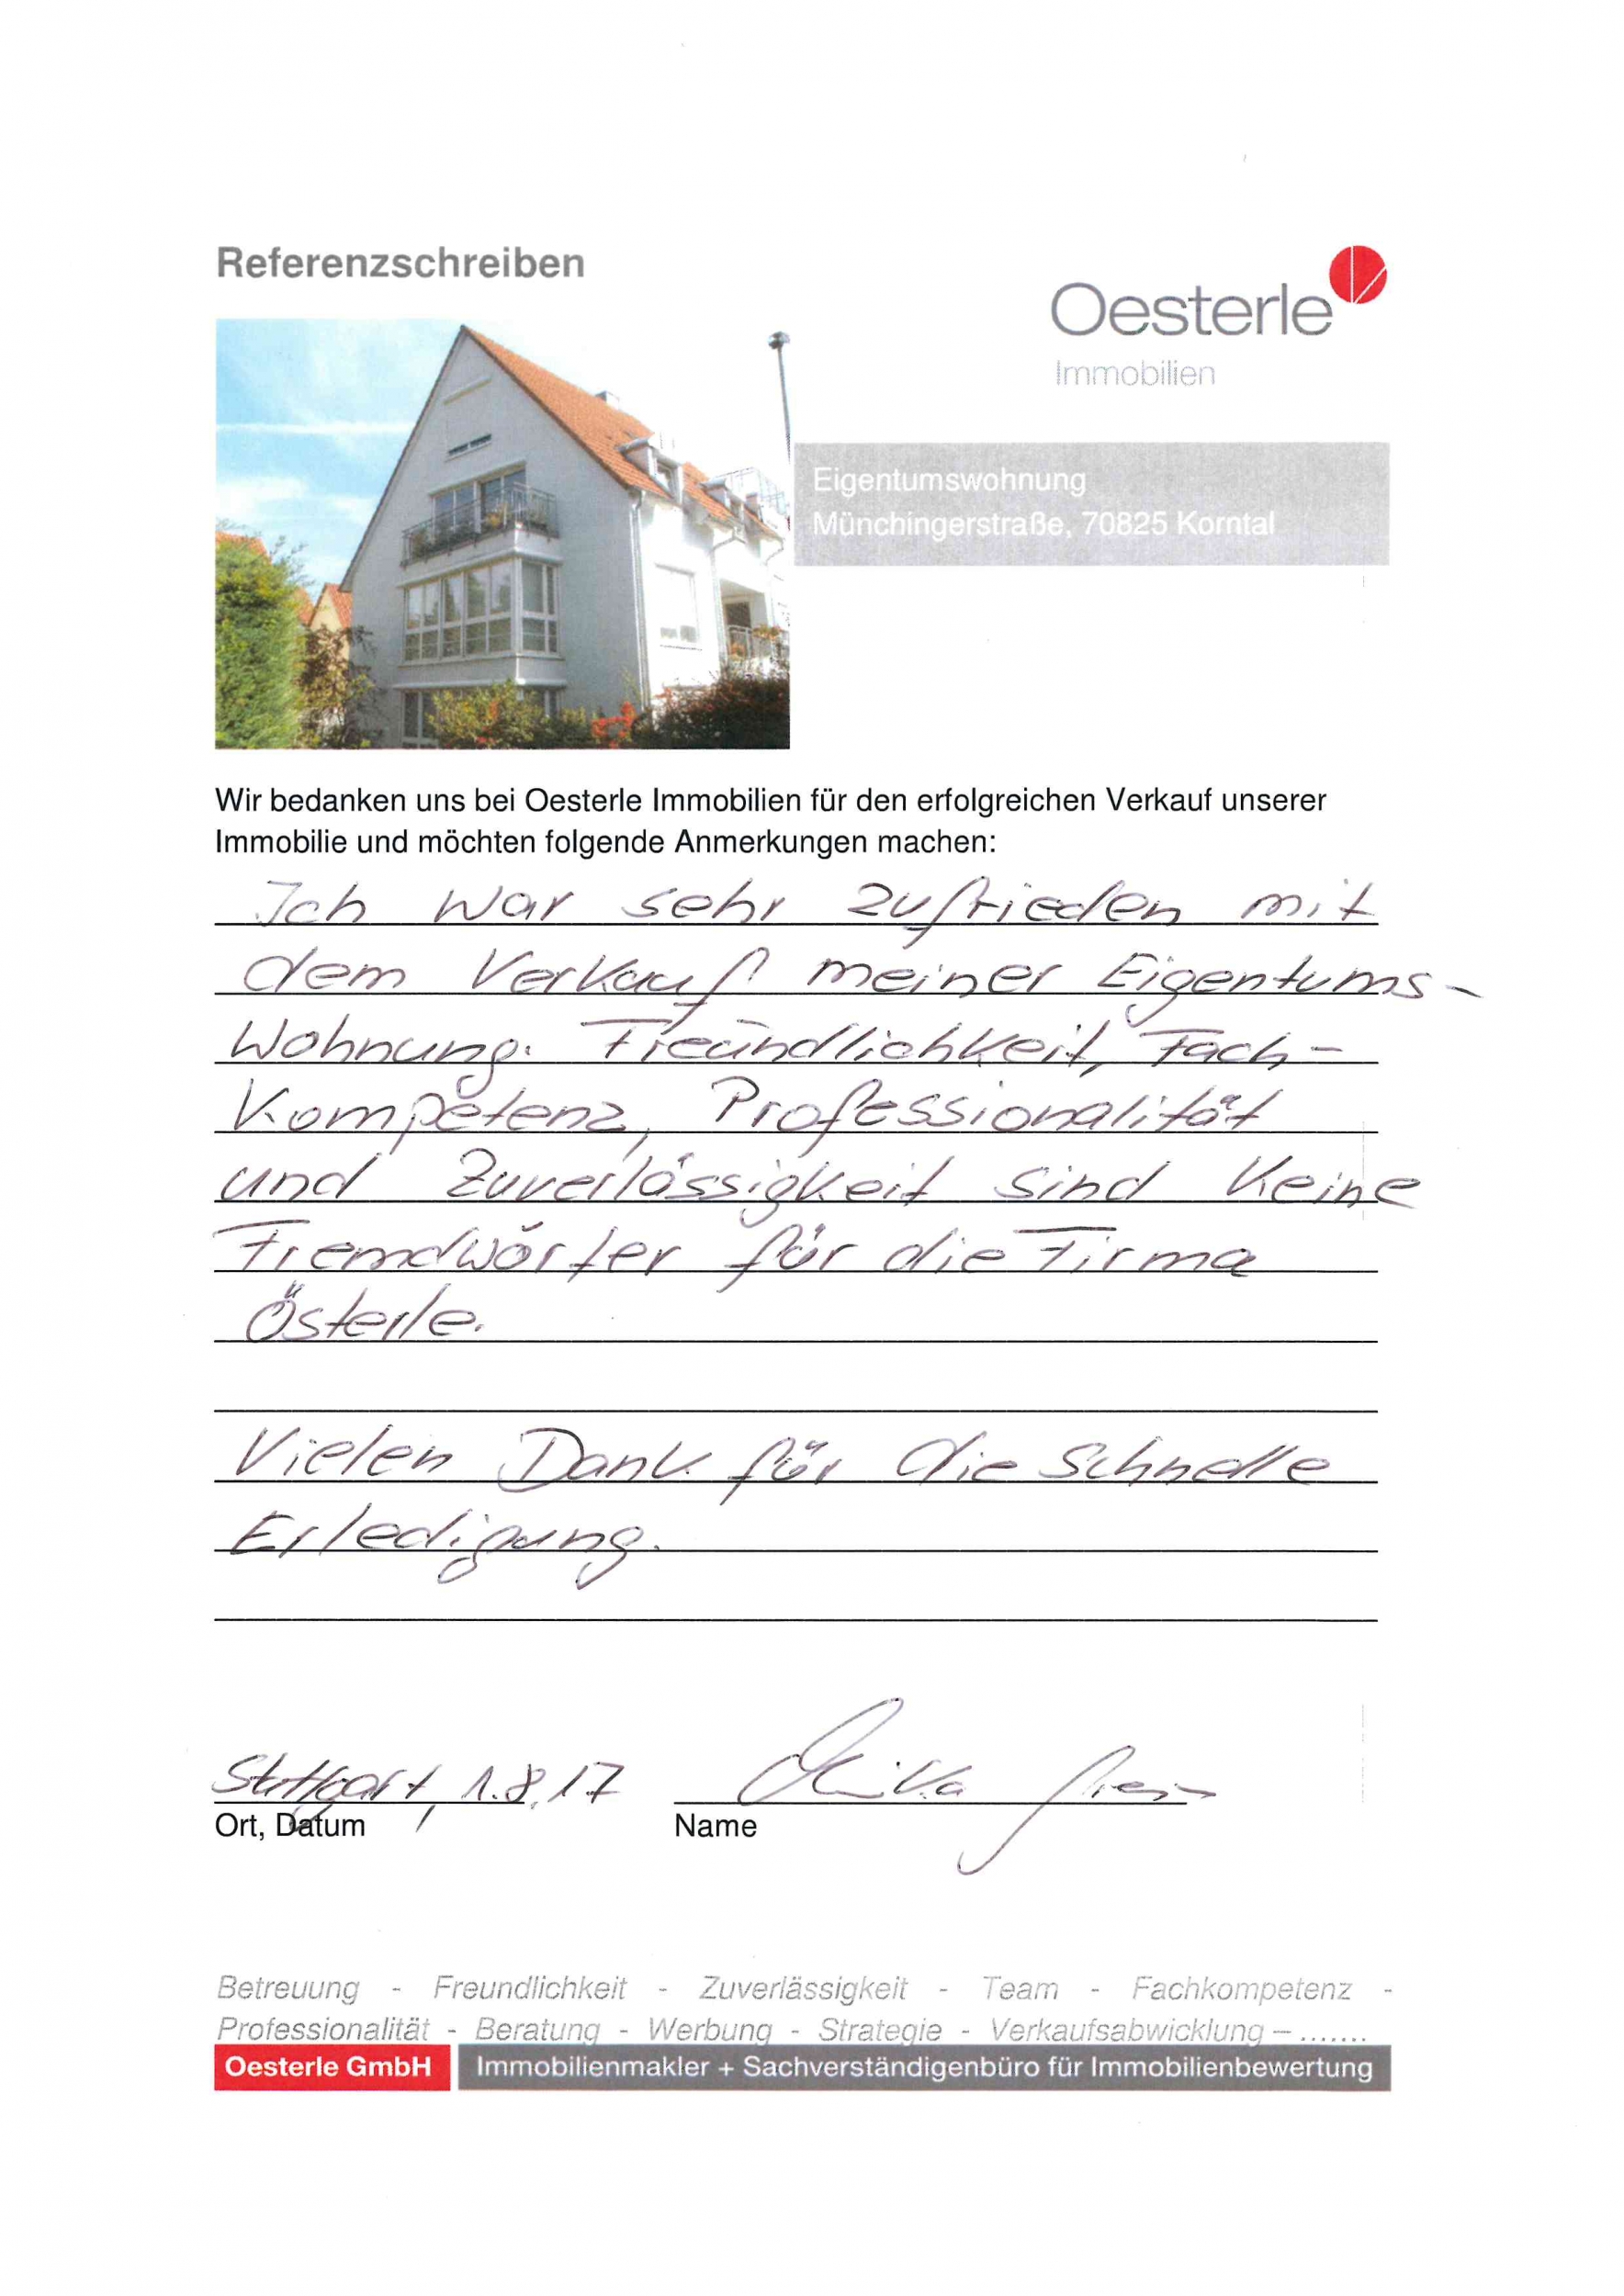 Referenzschreiben
Oesterle
Immobilien
Eigentumswohnung
Münchingerstraße, 70825 Korntal
Wir bedanken uns bei Oesterle Immobilien für den erfolgreichen Verkauf unserer
Immobilie und möchten folgende Anmerkungen machen:
Ich war sehr zufrieden mit
dem Verkauf meiner Eigentums-
Wohnung. Freundlichkeit, Fach-
Kompetenz, Professionalität
und Zuverlässigkeit sind keine
Fremdwörter für die Firma
Österle.
Vielen Dank für die schnelle
Erledigung.
Stuttgart, 1.8.17
Ort, Datum
Name
Betreuung - Freundlichkeit - Zuverlässigkeit - Team - Fachkompetenz -
Professionalität - Beratung - Werbung - Strategie - Verkaufsabwicklung – .......
Oesterle GmbH
Immobilienmakler + Sachverständigenbüro für Immobilienbewertung